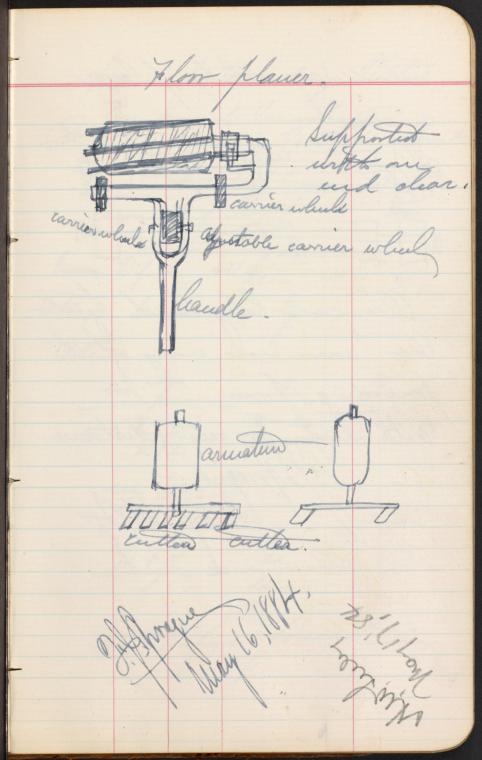 Floor planer.
Supported
with one
end clear.
carrier wheels
carrier wheels
adjustable carrier wheel
handle.
armature
cutter cutter.
F.J. Sprague
May 16, 1884.
May 17, '84